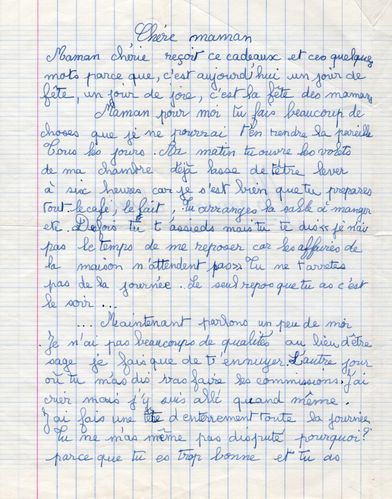 Chère maman
Maman chérie reçoit ce cadeaux et ces quelques
mots parce que, c'est aujourd'hui un jour de
fête, un jour de joie, c'est la fête des mamans
Maman pour moi tu fais beaucoup de
choses que je ne pourrai t'en rendre la pareille
Tous les jours. Au matin tu ouvre les volets
de ma chambre déjà lasse de t'être lever
à six heures car je s'est bien que tu prépares
tout le café, le lait, tu arranges la table à manger
etc. Dehors tu t'assieds mais tu te dis « je n'ai
pas le temps de me reposer car les affaires de
la maison n'attendent pas » Tu ne t'arretes
pas de la journée. Le seul repos que tu as c'est
le soir ...
... Maintenant parlons un peu de moi
Je n'ai pas beaucoups de qualités au lieu d'être
sage je fais que de t'ennuyer. L'autre jour
où tu m'as dis vas faire les commissions. J'ai
crier mais j'y suis allé quand même.
J'ai fais une tête d'enterrement toute la journée
Tu ne m'as même pas disputé pourquoi?
parce que tu es trop bonne et tu as